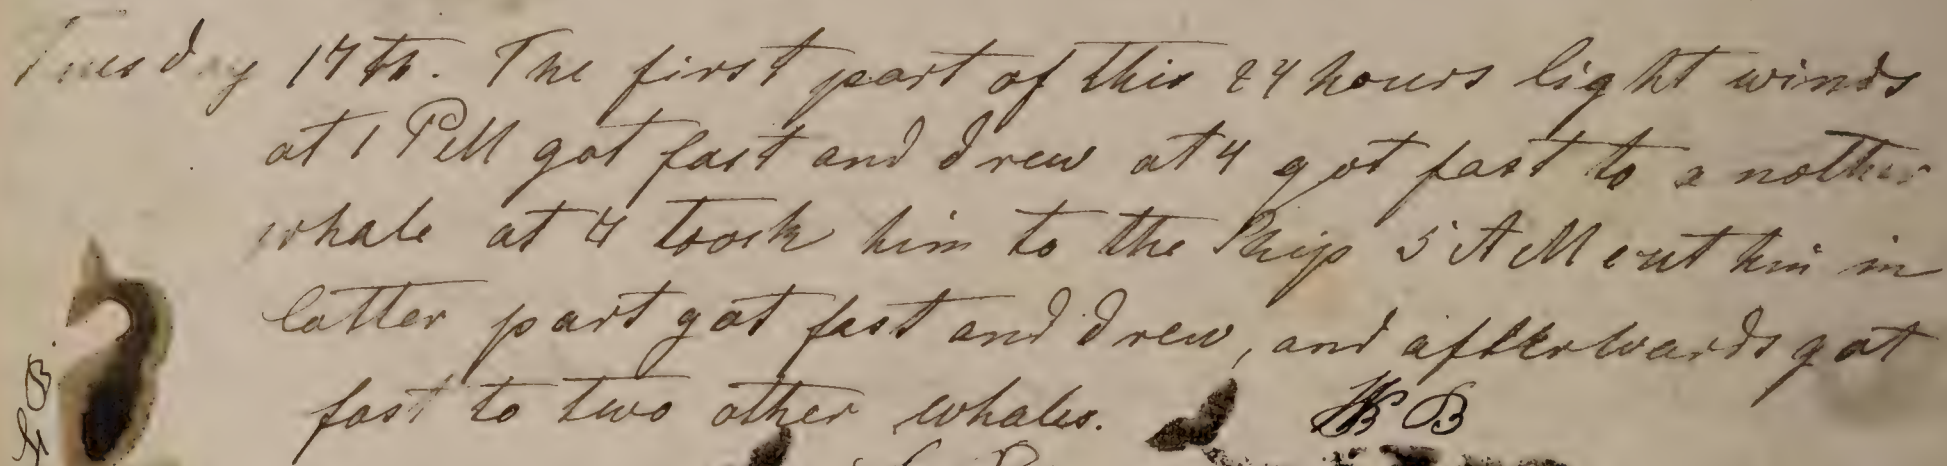 Tuesday 17th. The first part of this 24 hours light winds
at 1 PM got fast and drew at 4 got fast to a nother
whale at 7 took him to the Ship 5 A M cut him in
latter part got fast and drew, and afterwards got
fast to two other whales. W B
B.